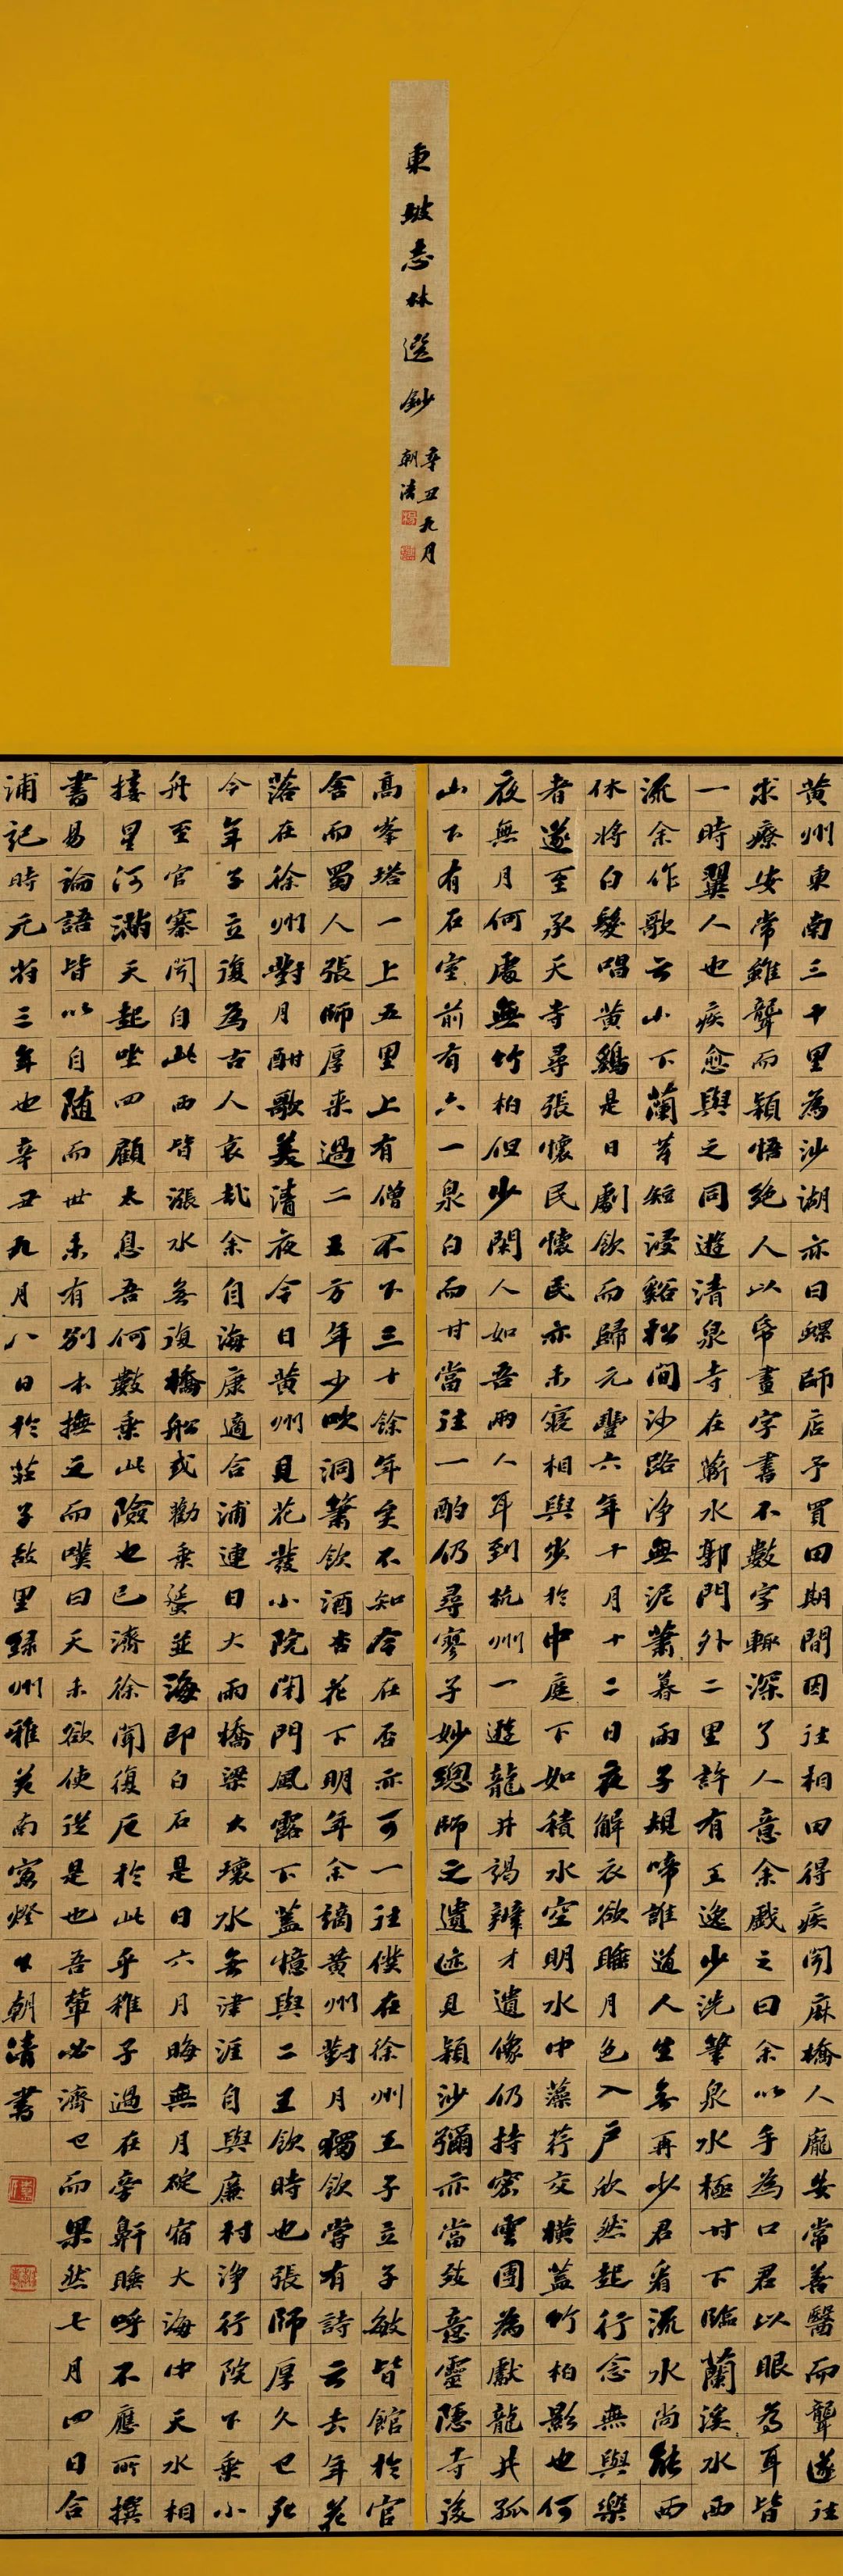 東坡志林選鈔
辛丑九月
朝清
黄州東南三十里為沙湖亦曰螺師店予買田期間因往相田得疾聞麻橋人龐安常善醫而聾遂往
求療安常雖聾而穎悟絶人以帋畫字書不數字輒深了人意余戲之曰余以手為口君以眼為耳皆
一時異人也疾愈與之同遊清泉寺在蘄水郭門外二里許有王逸少洗筆泉水極甘下臨蘭溪水西
流余作歌云山下蘭芽短浸谿松間沙路淨無泥蕭暮雨子規啼誰道人生無再少君看流水尚能西
休將白髮唱黄鷄是日劇飲而歸元豐六年十月十二日夜解衣欲睡月色入户欣然起行念無與樂
者遂至承天寺尋張懷民懷民亦未寢相與步於中庭下如積水空明水中藻荇交橫蓋竹柏影也何
夜無月何處無竹柏但少閑人如吾兩人耳到杭州一遊龍井謁辯才遺像仍持密雲團為獻龍井孤
山下有石室前有六一泉白而甘當往一酌仍尋寥子妙總師之遺迹見穎沙彌亦當致意靈隱寺後
高峯塔一上五里上有僧不下三十餘年矣不知今在否亦可一往僕在徐州王子立子敏皆館於官
舍而蜀人張師厚来過二王方年少吹洞簫飲酒杏花下明年余謫黄州對月獨飲嘗有詩云去年花
落在徐州對月酣歌美清夜今日黄州見花發小院閉門風露下蓋憶與二王飲時也張師厚久已死
今年子立復為古人哀哉余自海康適合浦連日大雨橋梁大壞水無津涯自興廉村淨行院下乗小
舟至官寨聞自此西皆漲水無復橋船或勸乗蜑並海即白石是日六月晦無月碇宿大海中天水相
接星河滿天起坐四顧太息吾何數乗此險也已濟徐聞復厄於此乎稚子過在旁鼾睡呼不應所撰
書易論語皆以自随而世未有别本撫之而嘆曰天未欲使従是也吾輩必濟已而果然七月四日合
浦記時元符三年也辛丑九月八日於莊子故里緑州雅苑南窗燈下朝清書